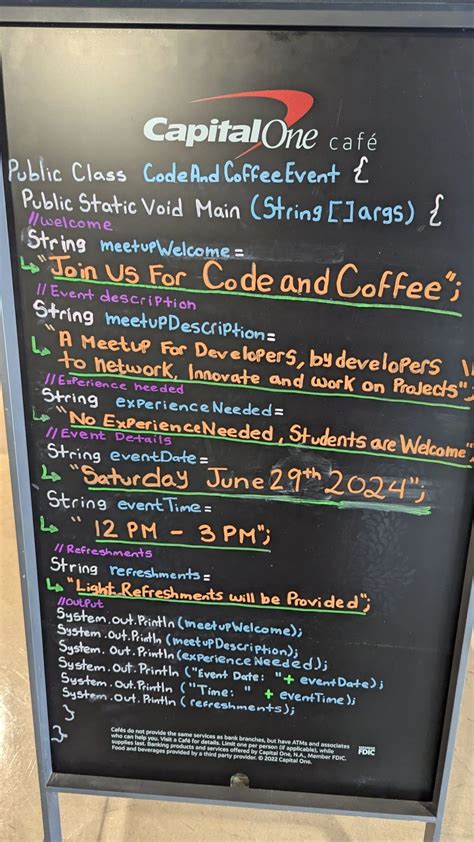 CapitalOne café
Public Class CodeAndCoffeeEvent {
Public Static Void Main (String []args) {
//welcome
String meetupWelcome =
"Join Us For Code and Coffee";
//Event description
String meetupDescription=
"A Meetup For Developers, by developers \\
to Network, Innovate and work on Projects";
//Experience needed
String experienceNeeded=
"No Experience Needed, Students are Welcome"
//Event Details
String eventDate=
"Saturday June 29th 2024";
String eventTime=
" 12 PM - 3 PM";
//Refreshments
String refreshments=
"Light Refreshments will be Provided";
//Output
System.out.Println (meetupWelcome);
System.out.Println (meetupDescription);
System.out.Println (experienceNeeded);
System.out.Println ("Event Date: "+ eventDate);
System.out.Println ("Time: " + eventTime);
System.out.Println (refreshments);
}
}
Cafés do not provide the same services as bank branches, but have ATMs and associates
who can help you. Visit a Café for details. Limit one per person (if applicable), while
supplies last. Banking products and services offered by Capital One, N.A., Member FDIC.
Food and beverages provided by a third party provider. © 2022 Capital One.
FDIC